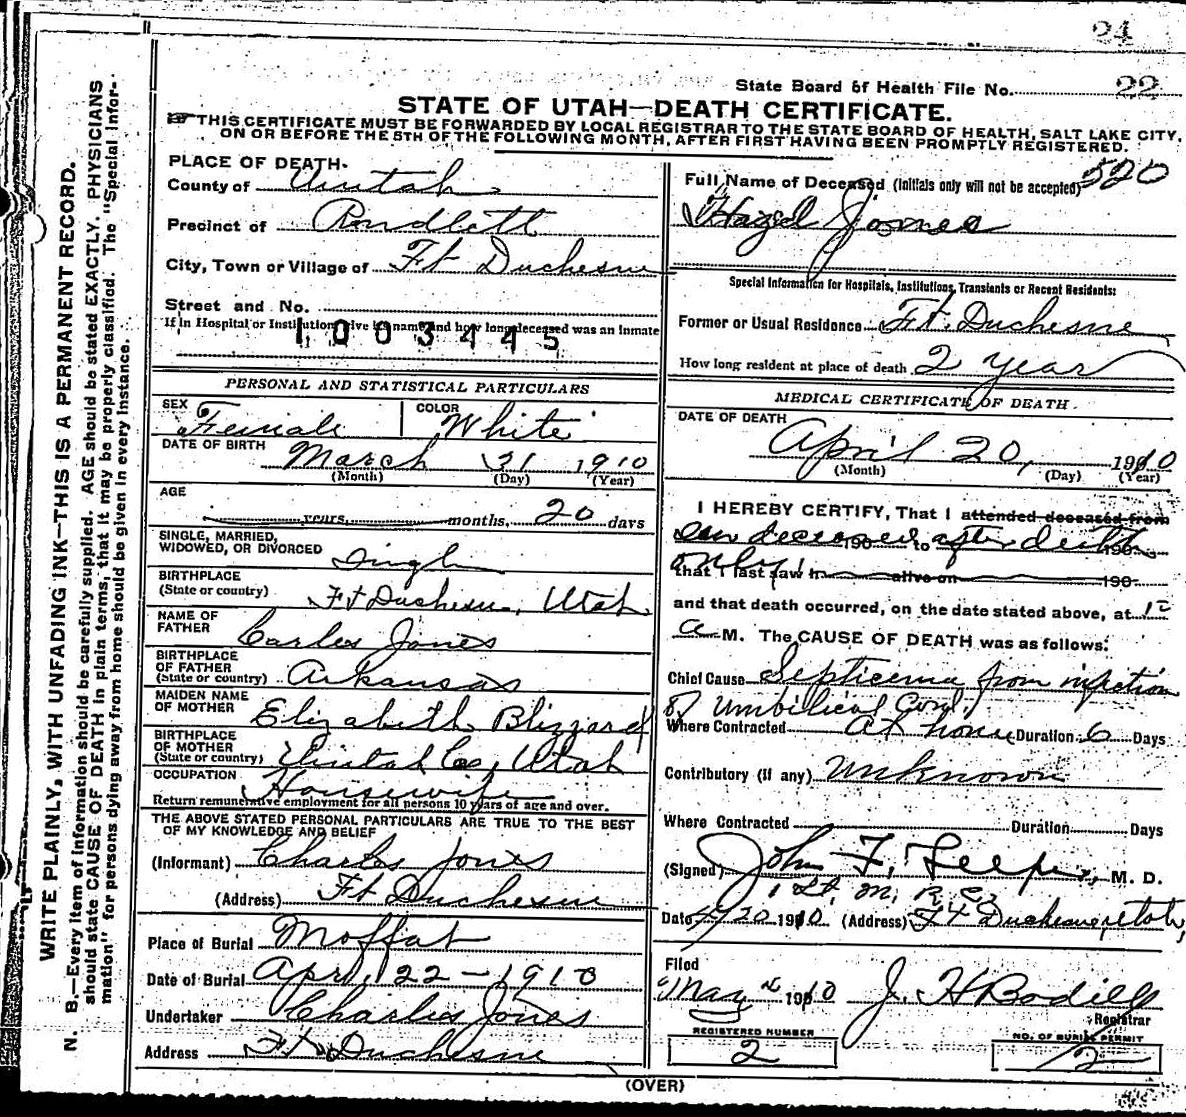 24
State Board of Health File No. 22
STATE OF UTAH—DEATH CERTIFICATE.
THIS CERTIFICATE MUST BE FORWARDED BY LOCAL REGISTRAR TO THE STATE BOARD OF HEALTH, SALT LAKE CITY,
ON OR BEFORE THE 5TH OF THE FOLLOWING MONTH, AFTER FIRST HAVING BEEN PROMPTLY REGISTERED.
WRITE PLAINLY, WITH UNFADING INK—THIS IS A PERMANENT RECORD.
N. B.—Every item of information should be carefully supplied. AGE should be stated EXACTLY. PHYSICIANS
should state CAUSE OF DEATH in plain terms, that it may be properly classified. The "Special Infor-
mation" for persons dying away from home should be given in every instance.
PLACE OF DEATH.
County of Uintah
Precinct of Randlett
City, Town or Village of Ft Duchesne
Street and No.
If in Hospital or Institution, give its name and how long deceased was an inmate
1003445
PERSONAL AND STATISTICAL PARTICULARS
SEX Female COLOR White
DATE OF BIRTH March 31 1910
(Month) (Day) (Year)
AGE
years, months, 20 days
SINGLE, MARRIED,
WIDOWED, OR DIVORCED Single
BIRTHPLACE
(State or country) Ft Duchesne, Utah
NAME OF
FATHER Carles Jones
BIRTHPLACE
OF FATHER
(State or country) Arkansas
MAIDEN NAME
OF MOTHER Elizabeth Blizzard
BIRTHPLACE
OF MOTHER
(State or country) Uintah Co, Utah
OCCUPATION Housewife
Return remunerative employment for all persons 10 years of age and over.
THE ABOVE STATED PERSONAL PARTICULARS ARE TRUE TO THE BEST
OF MY KNOWLEDGE AND BELIEF
(Informant) Charles Jones
(Address) Ft Duchesne
Place of Burial Moffat
Date of Burial Apr. 22 - 1910
Undertaker Charles Jones
Address Ft Duchesne
Full Name of Deceased (Initials only will not be accepted) 520
Hazel Jones
Special Information for Hospitals, Institutions, Transients or Recent Residents:
Former or Usual Residence Ft. Duchesne
How long resident at place of death 2 year
MEDICAL CERTIFICATE OF DEATH.
DATE OF DEATH
April 20, 1910
(Month) (Day) (Year)
I HEREBY CERTIFY, That I attended deceased from
saw deceased after death 190 to 190
only
that I last saw h alive on 190
and that death occurred, on the date stated above, at 12
a M. The CAUSE OF DEATH was as follows:
Chief Cause Septicemia from infection
of Umbilical Cord.
Where Contracted At home Duration 6 Days
Contributory (if any) Unknown
Where Contracted Duration Days
(Signed) John F. Leeper, M. D.
1 Lt. M. R. C.
Date 4/20 1910 (Address) Ft Duchesne, Utah,
Filed
May 2 1910 J. H Bodily
Registrar
REGISTERED NUMBER
2
NO. OF BURIAL PERMIT
2
(OVER)